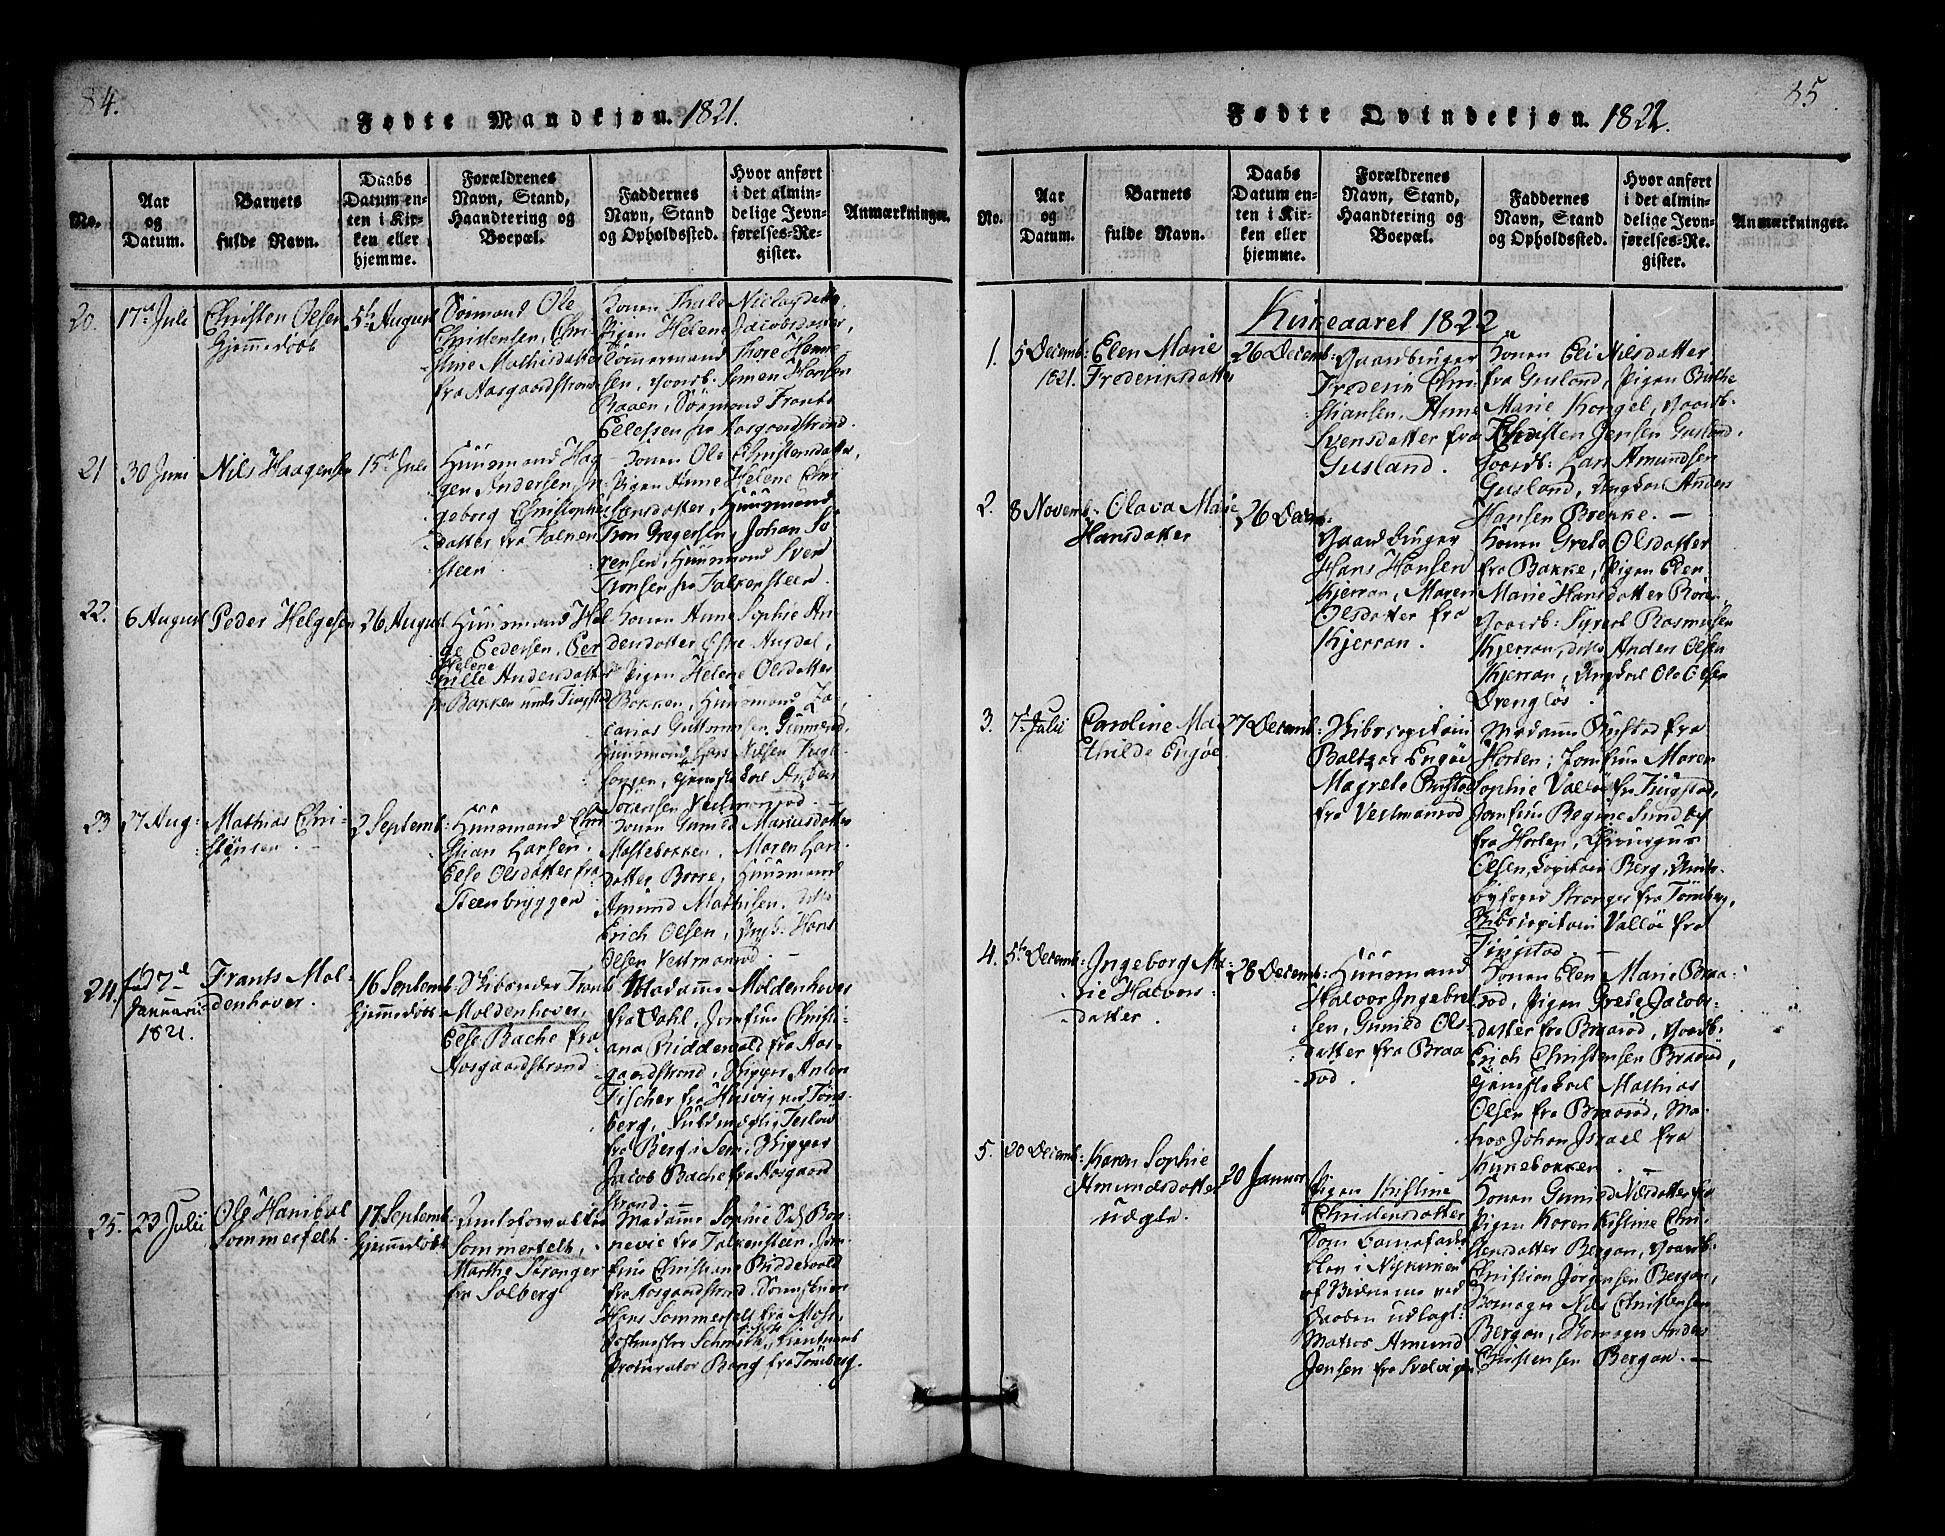 84.
Fødte Mandkjøn. 1821.
No.
Aar og Datum.
Barnets fulde Navn.
Daabs Datum enten i Kirken eller hjemme.
Forældrenes Navn, Stand, Haandtering og Boepæl.
Faddernes Navn, Stand og Opholdssted.
Hvor anført i det almindelige Jevnførelses-Register.
Anmærkninger.
20.
17de Juli
Christen Olsen
Hjemmedøbt
5th August
Sømand Ole
Christensen, Chri-
stine Mathisdatter
fra Aasgaardstrand
Pigen Helene Jacobsdatter,
Tømmermand Thore Hanne
sen, Gaardb. Simen Hansen
Sømand Frants
fra Aasgaardstrand.
21
30 Juni
Nils Haagensen
15de Juli
Huusmand Haa
gen Andersen, In
geborg Christophers
datter fra Falken
steen
Konen Ole Christensdatter,
Pigen Anne Helene Chri
stensdatter, Huusmand
Tron Gregersen, Johan Sø
rensen, Huusmand Svend
Tronsen fra Falkensteen.
22.
6 August
Peder Helgesen
26 August
Huusmand Hel
ge Pedersen, Per
Helene
nille Andersdatter
fr Bakken under Fingstad
Konen Anne Sophie An
dersdatter
Pigen Helene Olsdatter
Bakken, Huusmand Za
carias Guttormsen,
Huusmand Lars Nilsen
Sørensen Vestmansrød.
23
27 Aug:
Mathias Chri-
stensen.
2 Septemb:
Huusmand Chri
stian Larsen,
Else Olsdatter fra
Steenbryggen
Konen Gunild Mariusdatter
Maren Lars
datter Borre, Huusmand
Amund Mathisen, ditto
Erich Olsen, Ungk: Hans
Olsen Vestmansrød.
24.
fød 7de
Januari
1821.
Frants Mol-
denhover.
16 Septemb
hjemmedøbt
Skibsreder Frants
Moldenhover,
Else Bache fra
Aasgaardstrand
Madame Moldenhover
fra Dahl, Jomfru Christi-
ana Riddervold fra Aas-
gaardstrand, Skipper Anton
Fischer fra Husvig ved Tøns-
berg, Fuldmægtig Teslow
fra Berg i Sem, Skipper
Jacob Bache fra Aasgaard
strand.
25.
23 Julii
Ole Hanibal
Sommerfelt.
17 Septemb
hjemmedøbt
Amtsforvalter
Sommerfelt,
Marthe Stranger
fra Solberg
Madame Sophie
fra Falkensteen, Jom-
frue Christiane Riddervold
fra Aasgaardstrand,
Hans Sommerfelt fra Moss,
Postmester
Procurator Bang fra Tønsberg.
85
Fødte Qvindekjøn. 1822.
No.
Aar og Datum.
Barnets fulde Navn.
Daabs Datum enten i Kirken eller hjemme.
Forældrenes Navn, Stand, Haandtering og Boepæl.
Faddernes Navn, Stand og Opholdssted.
Hvor anført i det almindelige Jevnførelses-Re. gister.
Anmærkninger.
Kirkeaaret 1822
1.
5 Decemb:
1821.
Elen Marie
Frederiksdatter
26 Decemb:
Gaardbruger
Frederik Chri
stiansen, Anne
Svensdatter fra
Gusland.
Konen Eli Nilsdatter
fra Gusland, Pigen Birthe
Marie Kongel, Gaardb:
Christen Jensen Gusland,
Gaardb: Lars Amundsen
Gusland, Ungkarl Anders
Hansen Brekke. —
2.
8 Novemb
Olava Marie
Hansdatter
26 Decemb:
Gaardbruger
Hans Hansen
Kjerran, Maren
Olsdatter fra
Kjerran.
Konen Grete Olsdatter
fra Bakke, Pigen Elen
Marie Hansdatter
Gaardb: Syvert Rasmussen
Kjerran, ditto Anders Olsen
Kjerran, Ungkarl Ole Olsen
3.
7de Julii
Caroline Ma
thilde Engøe
27 Decemb:
Skibscapitain
Baltzar Engøe
Magrete Bustad
fra Vestmansrød
Madame Bustad fra
Horten, Jomfrue Maren
Sophie Valløe fr Fingstad,
Jomfrue Regine Sundby
fra Horten, Chirurgus
Olsen, Capitain Berg, Under
byfoged Stranger fra Tønsberg,
Skibscapitain Valløe fra
Fingstad
4.
5te Decemb:
Ingeborg Ma-
rie Halvors-
datter.
28 Decemb:
Huusmand
Halvor Ingebret
sen, Gunild Ols-
datter fra Braa
rød.
Konen Elen Marie Braa
rød, Pigen Grete Jacobs-
datter fra Braarød, Gaardb:
Erich Christensen Braarød,
Ungkarl Mathias
Olsen fra Braarød, Ma-
tros Johan Israel fra
Kirkebakken. —
5.
20 Decemb:
Karen Sophie
Amundsdatter
uægte.
20 Januar
Pigen Kistine
Christensdatter
Som Barnefader
blev i Kirken
af Moderen ved
Daaben udlagt:
Matros Amund
Jensen fra Svelvigen
Konen Gunild Nilsdatter fra
Pigen Karen Kistine Chri
stensdatter Bergan, Gaardb:
Christian Jørgensen Bergan,
Nils Christensen
Bergan, Anders
Christensen Bergan. —